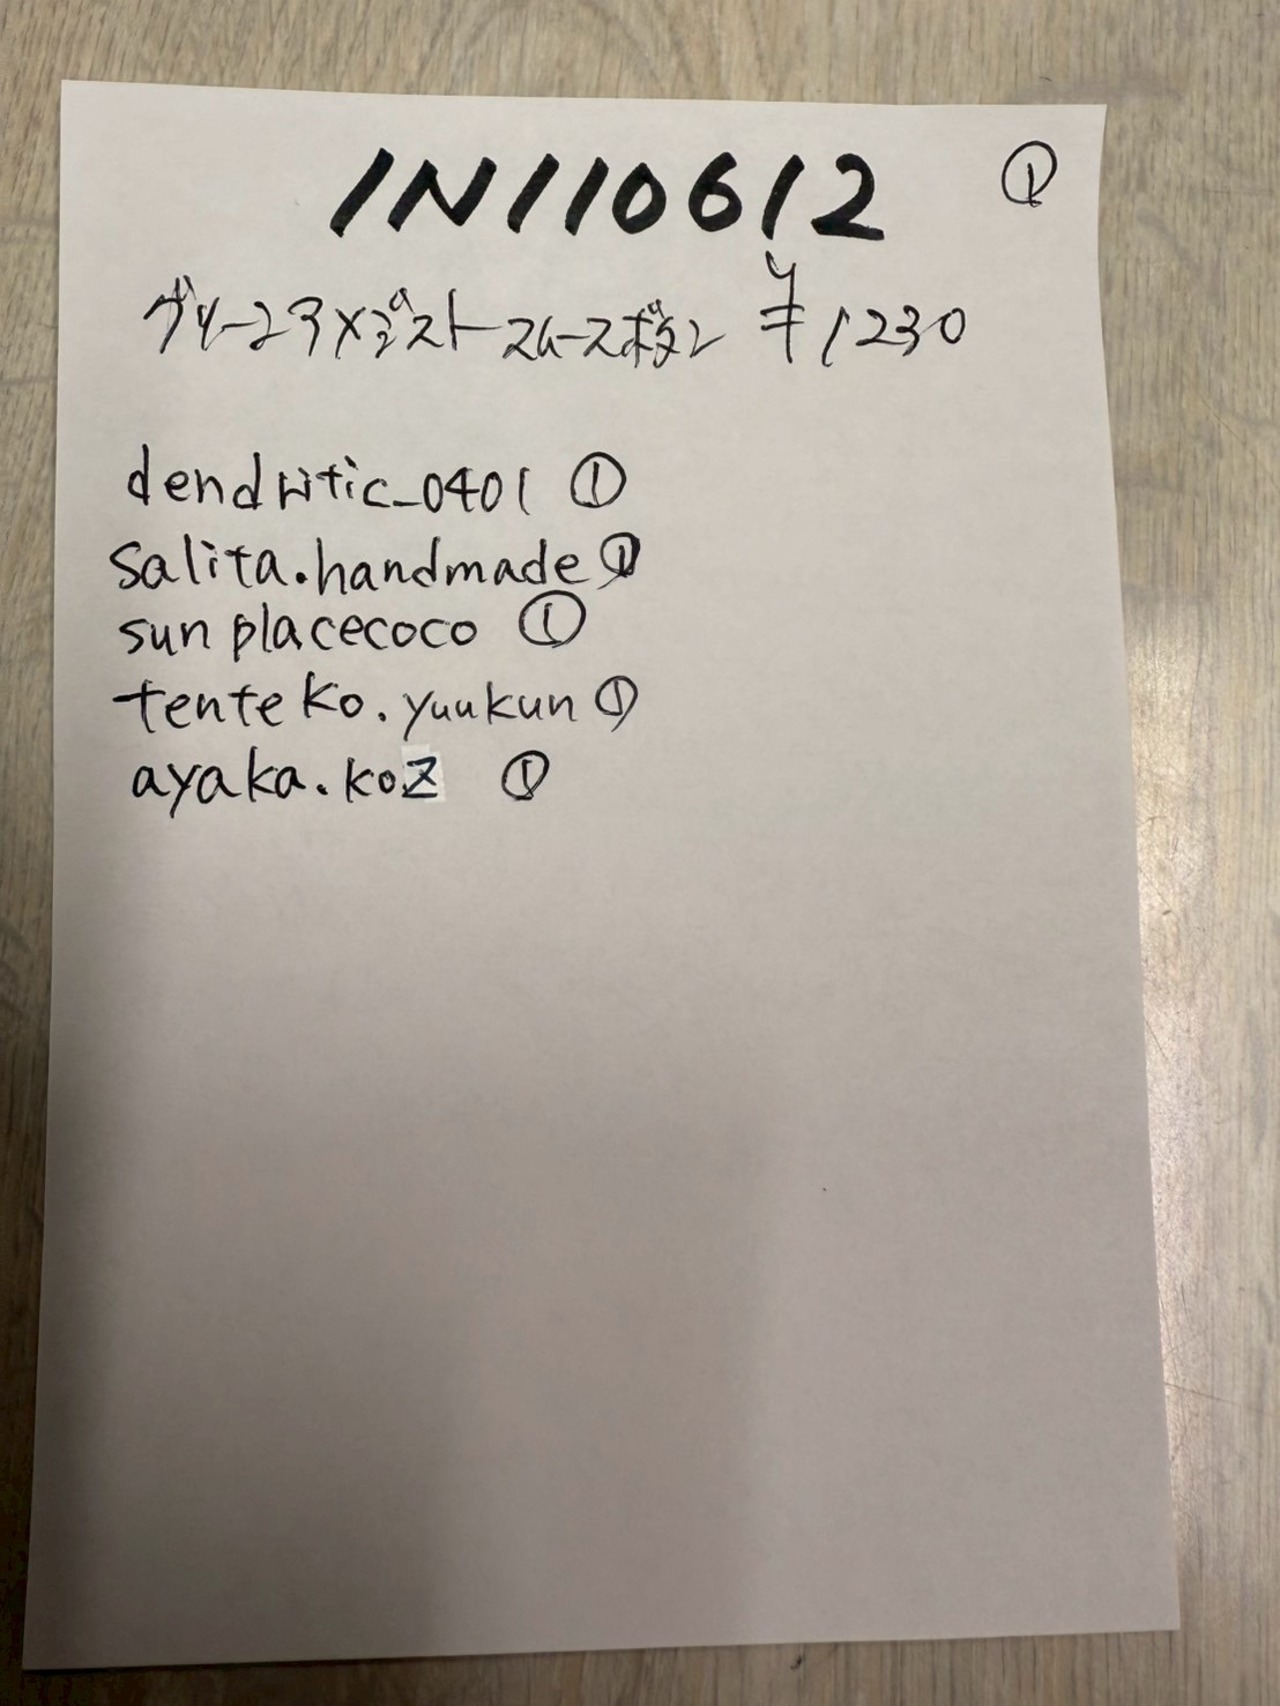 IN110612 ①
グリーンアメジストスムースボタン ¥1230
dendritic_0401 ①
salita.handmade ①
sunplacecoco ①
tenteko.yuukun ①
ayaka.koz ①